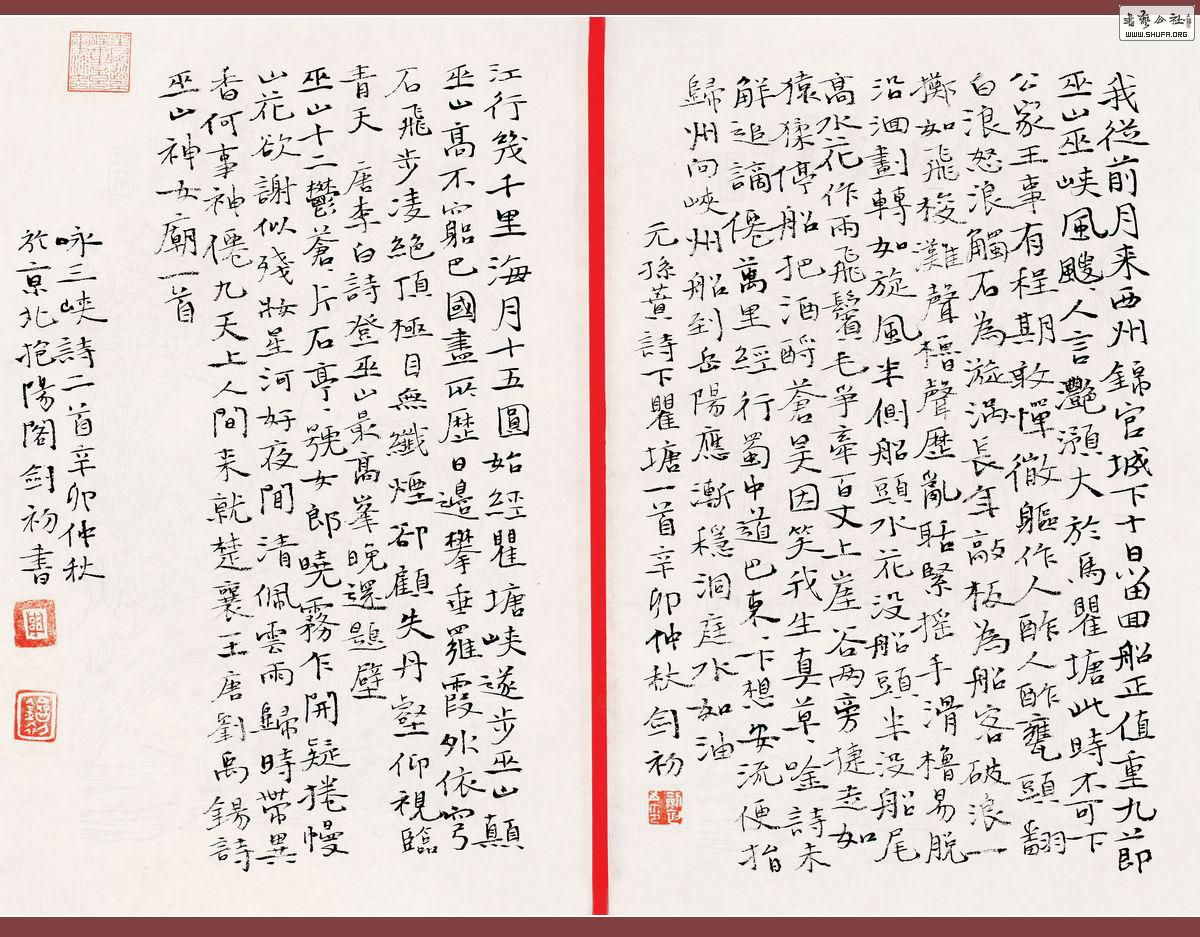 我從前月来西州錦官城下十日留回船正值重九節
巫山巫峽風颼〻人言灩澦大於馬瞿塘此時不可下
公家王事有程期敢憚微軀作人酢人酢甕頭翻
白浪怒浪觸石為漩渦長年敲板為船客破浪一
擲如飛梭灘聲櫓聲歷亂聒緊摇手滑櫓易脱
沿洄劃轉如旋風半側船頭水花没船頭半没船尾
高水花作雨飛鬢毛爭牽百丈上崖谷兩旁捷走如
猿猱停船把酒酹蒼昊因笑我生真草〻唫詩未
解追謫僊萬里經行蜀中道巴東〻下想安流便指
歸州向峽州船到岳陽應漸穩洞庭水如油
元孫蕡詩下瞿塘一首辛卯仲秋劍初
江行幾千里海月十五圓始經瞿塘峽遂步巫山巔
巫山高不窮巴國盡所歷日邊攀垂羅霞外依穹
石飛步凌絶頂極目無纖煙卻顧失丹壑仰視臨
青天 唐李白詩登巫山最高峯晚還題壁
巫山十二鬱蒼〻片石亭〻號女郎曉霧乍開疑捲幔
山花欲謝似殘妝星河好夜聞清佩雲雨歸時帶異
香何事神僊九天上人間来就楚襄王唐劉禹錫詩
巫山神女廟一首
咏三峽詩二首辛卯仲秋
於京北抱陽閣劍初書
書藝公社
WWW.SHUFA.ORG